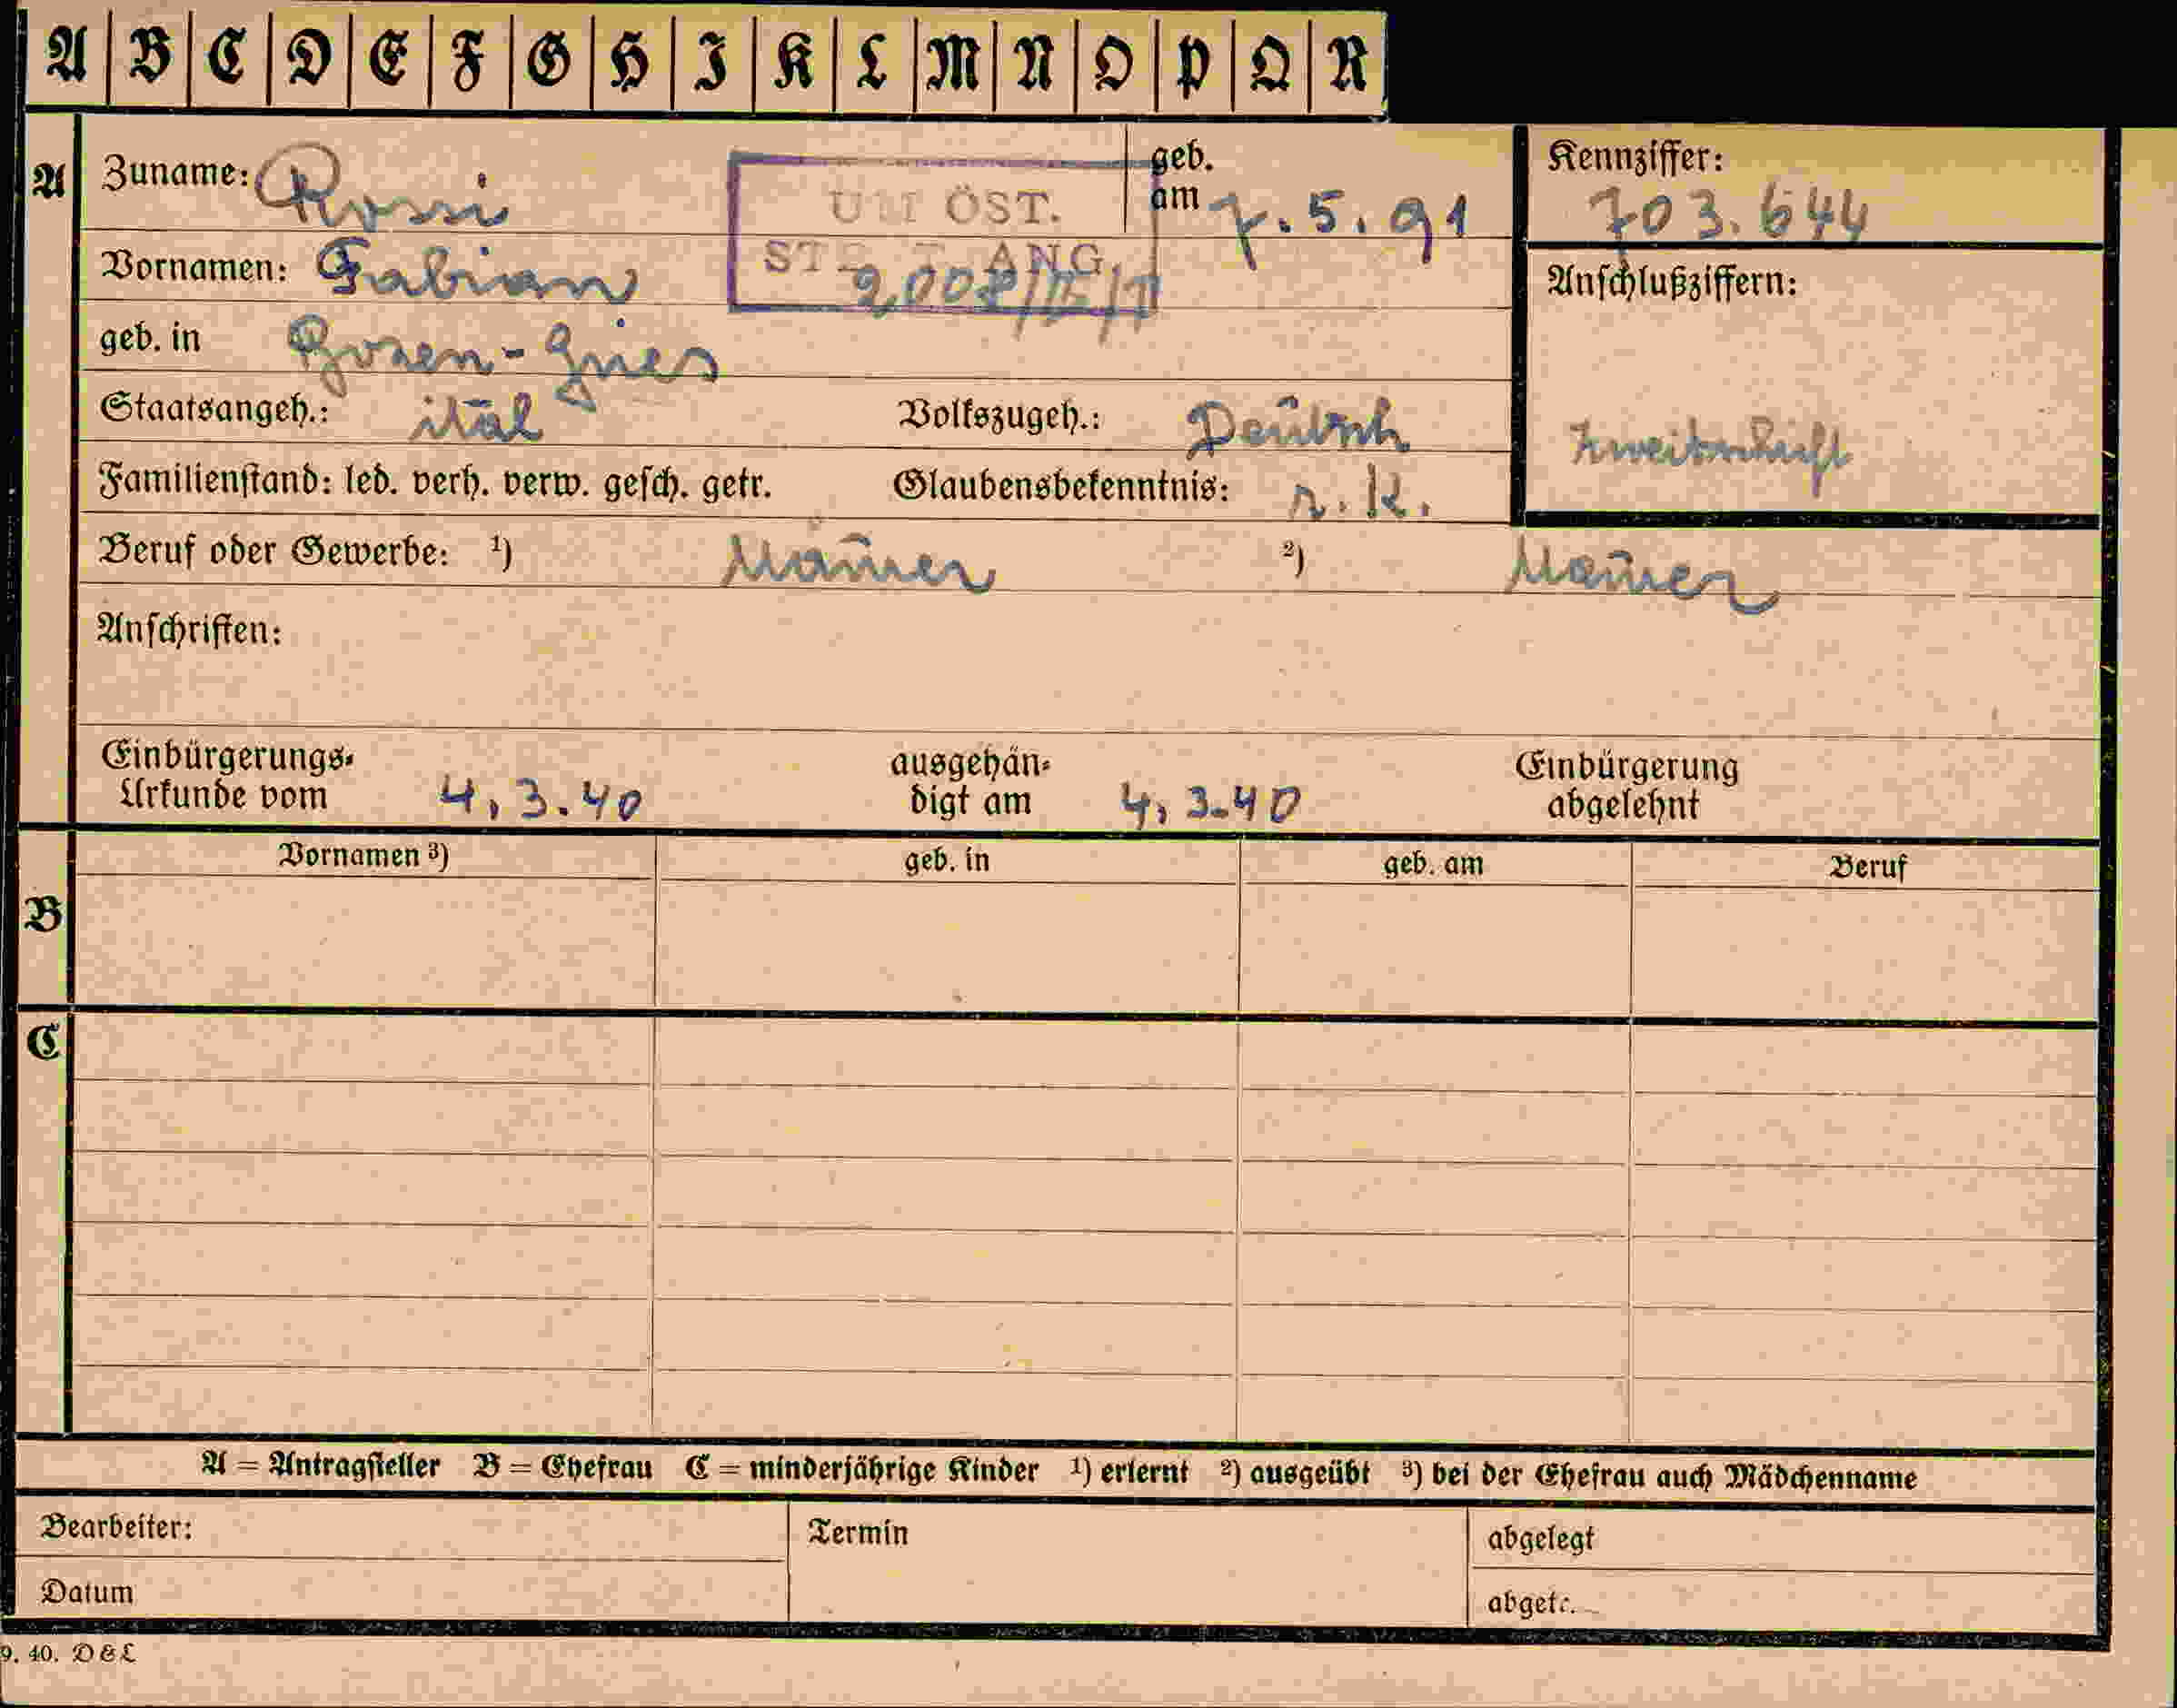 A B C D E F G H I K L M N O P Q R
A Zuname: Rossi geb. am 7.5.91 Kennziffer: 703.644
UM ÖST.
Vornamen: Fabian Anschlußziffern:
ANG
geb. in Bozen-Gries
Staatsangeh.: ital Volkszugeh.: Deutsch Zweitschrift
Familienstand: led. verh. verw. gesch. getr. Glaubensbekenntnis: r.k.
Beruf oder Gewerbe: 1) Maurer 2) Maurer
Anschriften:
Einbürgerungs- ausgehän- Einbürgerung
Urkunde vom 4.3.40 digt am 4.3.40 abgelehnt
Vornamen 3) geb. in geb. am Beruf
B
C
A = Antragsteller B = Ehefrau C = minderjährige Kinder 1) erlernt 2) ausgeübt 3) bei der Ehefrau auch Mädchenname
Bearbeiter: Termin abgelegt
Datum abgetr.
9. 40. D & L